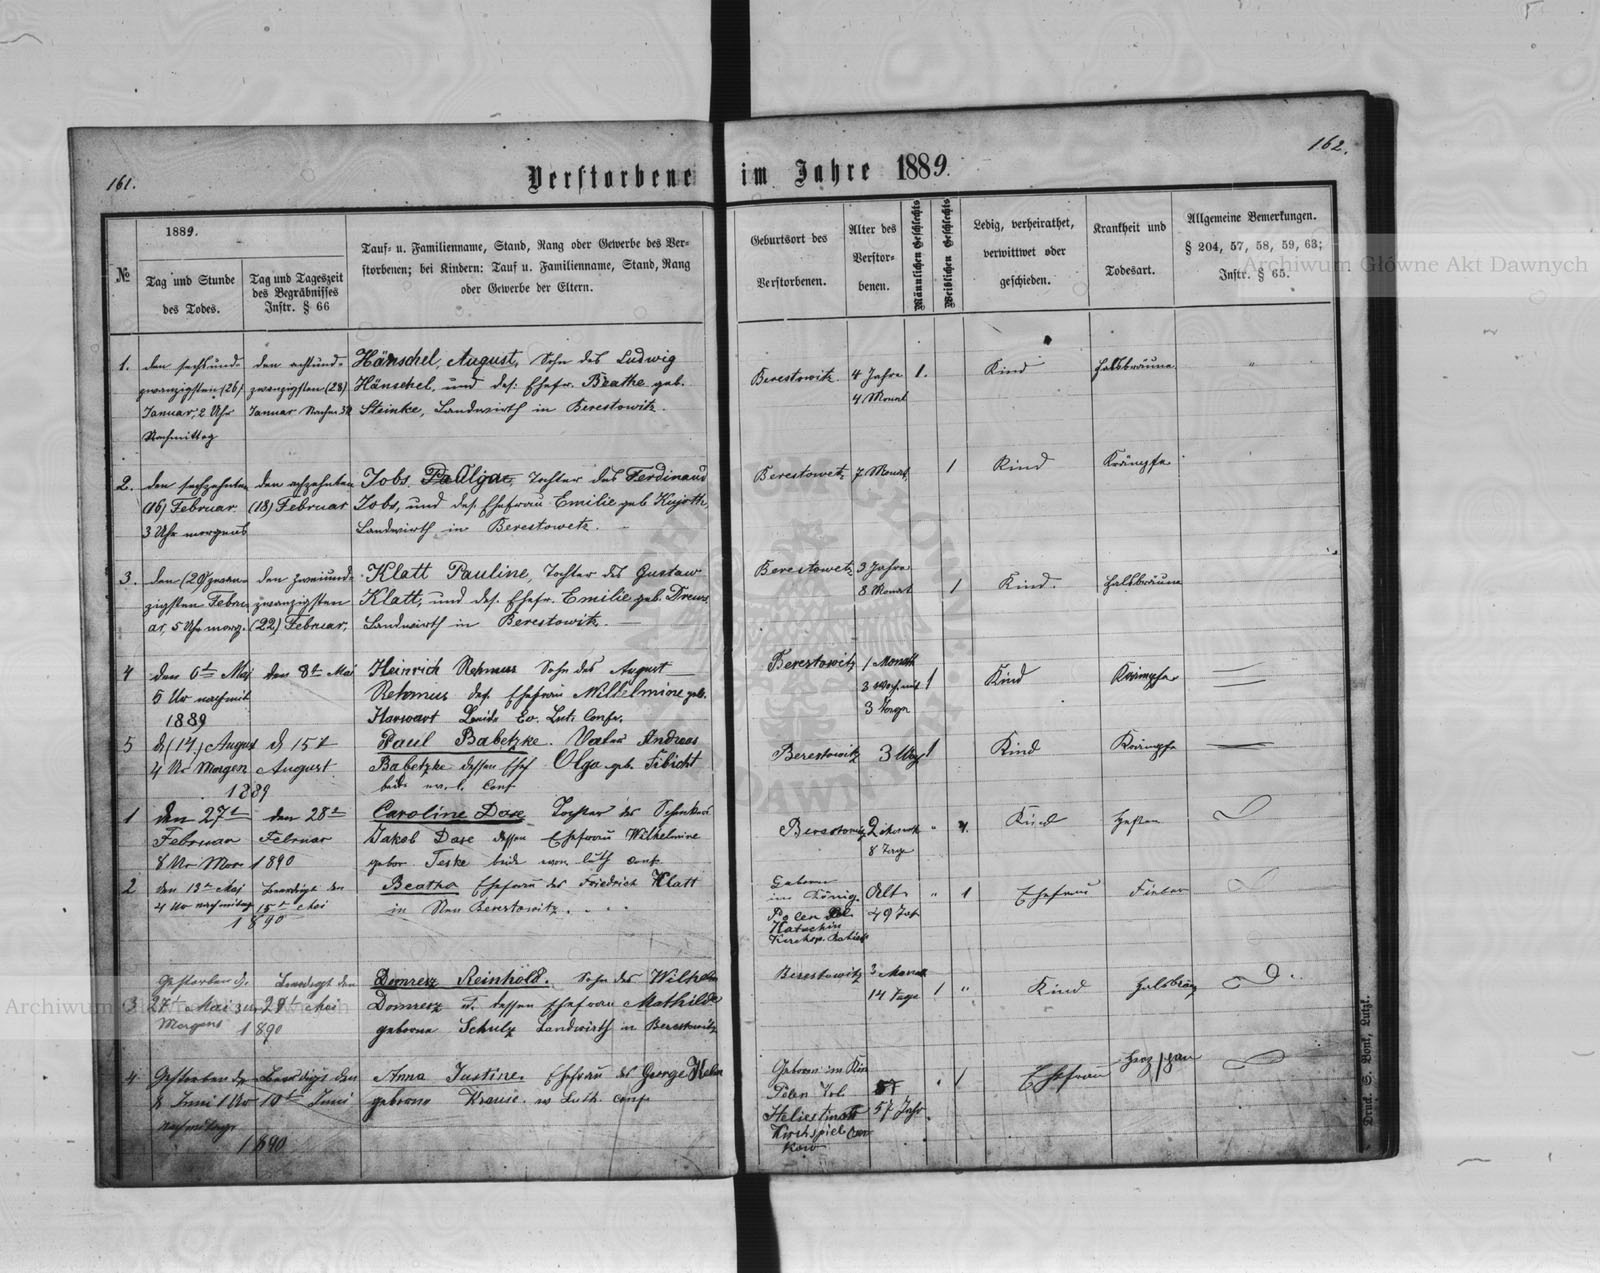 161.
162.
Verstorbene im Jahre 1889.
№
1889.
Tag und Stunde
des Todes.
Tag und Tageszeit
des Begräbnisses
Instr. § 66
Tauf- u. Familienname, Stand, Rang oder Gewerbe des Ver-
storbenen; bei Kindern: Tauf u. Familienname, Stand, Rang
oder Gewerbe der Eltern.
Geburtsort des
Verstorbenen.
Alter des
Verstor-
benen.
Männlichen Geschlechts
Weiblichen Geschlechts
Ledig, verheirathet,
verwittwet oder
geschieden.
Krankheit und
Todesart.
Allgemeine Bemerkungen.
§ 204, 57, 58, 59, 63;
Instr. § 65.
1.
den sechsund-
zwanzigsten (26)
Januar, 2 Uhr
Nachmittag
den achtund-
zwanzigsten (28)
Januar Nachm.
Hänschel, August, Sohn des Ludwig
Hänschel, und des. Ehefr. Beathe geb.
Steinke, Landwirth in Berestowitz.
Berestowitz
4 Jahre
4 Monat
1.
Kind
Halsbräune
2.
den sechzehnten
(16) Februar
3 Uhr morgens
den achzehnten
(18) Februar
Jobs, Olga, Tochter des Ferdinand
Jobs, und des. Ehefrau Emilie geb. Kujoth,
Landwirth in Berestowetz.
Berestowetz
7 Monat
1
Kind
Krämpfe
3.
den (20) zwan-
zigsten Febru-
ar, 5 Uhr morg.
den zweiund-
zwanzigsten
(22) Februar,
Klatt Pauline, Tochter des Gustaw
Klatt, und des. Ehefr. Emilie geb. Drews,
Landwirth in Berestowitz.
Berestowetz
3 Jahre
8 Monat
1
Kind.
Halsbräune
4
den 6ten Mai
5 Ur nachmit
1889
den 8ten Mai
Heinrich Rehmus Sohn des August
Rehmus des. Ehefrau Wilhelmine geb.
Harwart Beide Ev. Lut. Confe.
Berestowitz
1 Month
3 Woch. mit
3 Tage
1
Kind
Krämpfe
5
d. (14) August
4 Ur Morgen
1889
d. 15t
August
Paul Babetzke. Vater Andreas
Babetzke dessen Ehef Olga geb. Fibicht
beide ev. l. Conf
Berestowitz
3
1
Kind
Krämpfe
1
den 27t
Februar
8 Ur Mor.
1890
den 28t
Februar
Caroline Dase Tochter des
Jakob Dase dessen Ehefrau Wilhelmine
gebor Teske beide evan. luth Conf
Berestowitz
2 Monath
8 Tage
Kind
Husten
2
den 13t Mai
4 Ur nachmitag
1890
Beerdigt den
15t Mai
Beatha Ehefrau des Friedrich Klatt
in Neu Berestowitz.
Geboren
im König.
Polen
Alt
49 Jah
1
Ehefrau
Fieber
3
Gestorben d.
27t Mai 3 Ur
Morgens
1890
Beerdigt den
29t Mai
Domresz Reinhold. Sohn des Wilhelm
Domresz u. dessen Ehefrau Mathilde
geborne Schulz Landwirth in Berestowitz
Berestowitz
3 Monat
14 Tage
1
Kind
Halsbräu
4
Gestorben den
8 Juni 1 Ur
nachmitags
1890
Beerdigt den
10t Juni
Anna Justine. Ehefrau des George
geborne Krause. ev Luth. Conf
Geboren im Kön
Polen
Kirchspiel
57 Jahr
1
Ehefrau
Druck. S. Bonk, Lutzk.
Archiwum Główne Akt Dawnych
Archiwum Główne Akt Dawnych